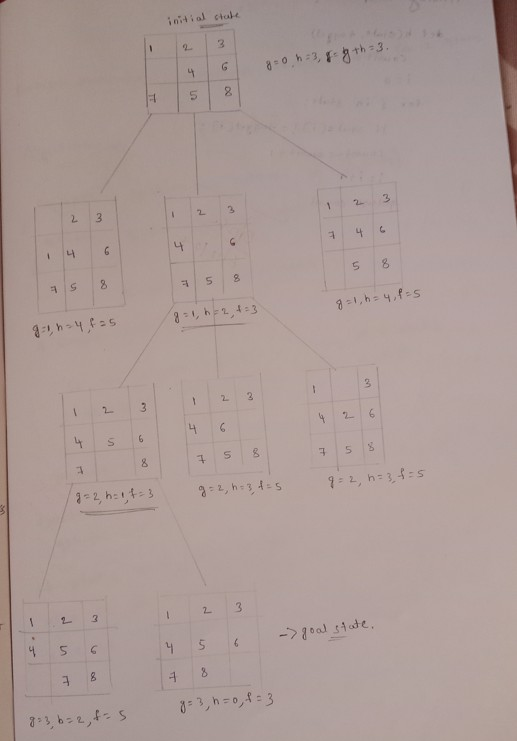 initial state
1 2 3
4 6
7 5 8
g=0, h=3, f= g+h=3.
2 3
1 4 6
7 5 8
g=1, h=4, f=5
1 2 3
4 6
7 5 8
g=1, h=2, f=3
1 2 3
7 4 6
5 8
g=1, h=4, f=5
1 2 3
4 5 6
7 8
g=2, h=1, f=3
1 2 3
4 6
7 5 8
g=2, h=3, f=5
1 3
4 2 6
7 5 8
g=2, h=3, f=5
1 2 3
4 5 6
7 8
g=3, h=2, f=5
1 2 3
4 5 6
7 8
g=3, h=0, f=3
-> goal state.